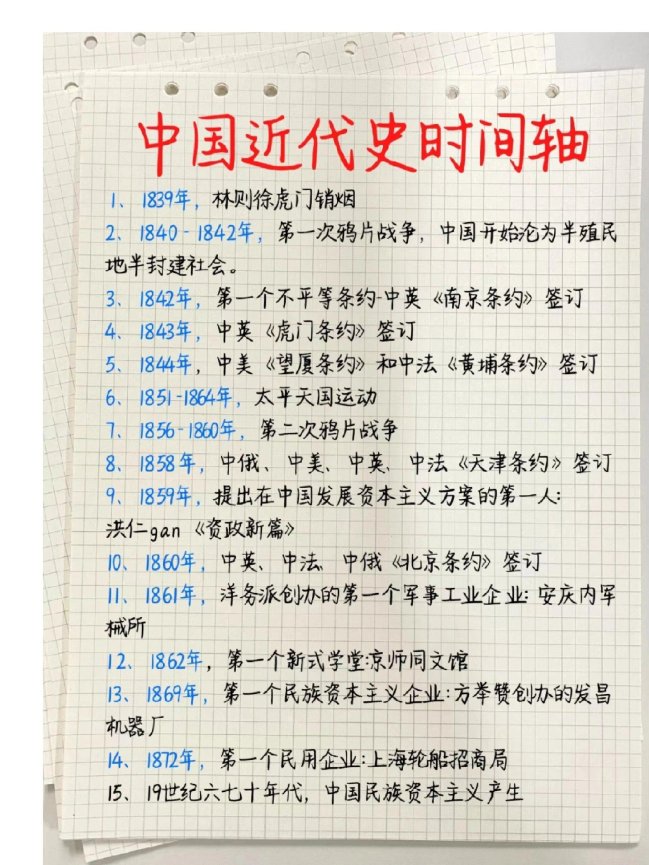 中国近代史时间轴
1、1839年，林则徐虎门销烟
2、1840-1842年，第一次鸦片战争，中国开始沦为半殖民
地半封建社会。
3、1842年，第一个不平等条约-中英《南京条约》签订
4、1843年，中英《虎门条约》签订
5、1844年，中美《望厦条约》和中法《黄埔条约》签订
6、1851-1864年，太平天国运动
7、1856-1860年，第二次鸦片战争
8、1858年，中俄、中美、中英、中法《天津条约》签订
9、1859年，提出在中国发展资本主义方案的第一人：
洪仁gan《资政新篇》
10、1860年，中英、中法、中俄《北京条约》签订
11、1861年，洋务派创办的第一个军事工业企业：安庆内军
械所
12、1862年，第一个新式学堂：京师同文馆
13、1869年，第一个民族资本主义企业：方举赞创办的发昌
机器厂
14、1872年，第一个民用企业：上海轮船招商局
15、19世纪六七十年代，中国民族资本主义产生